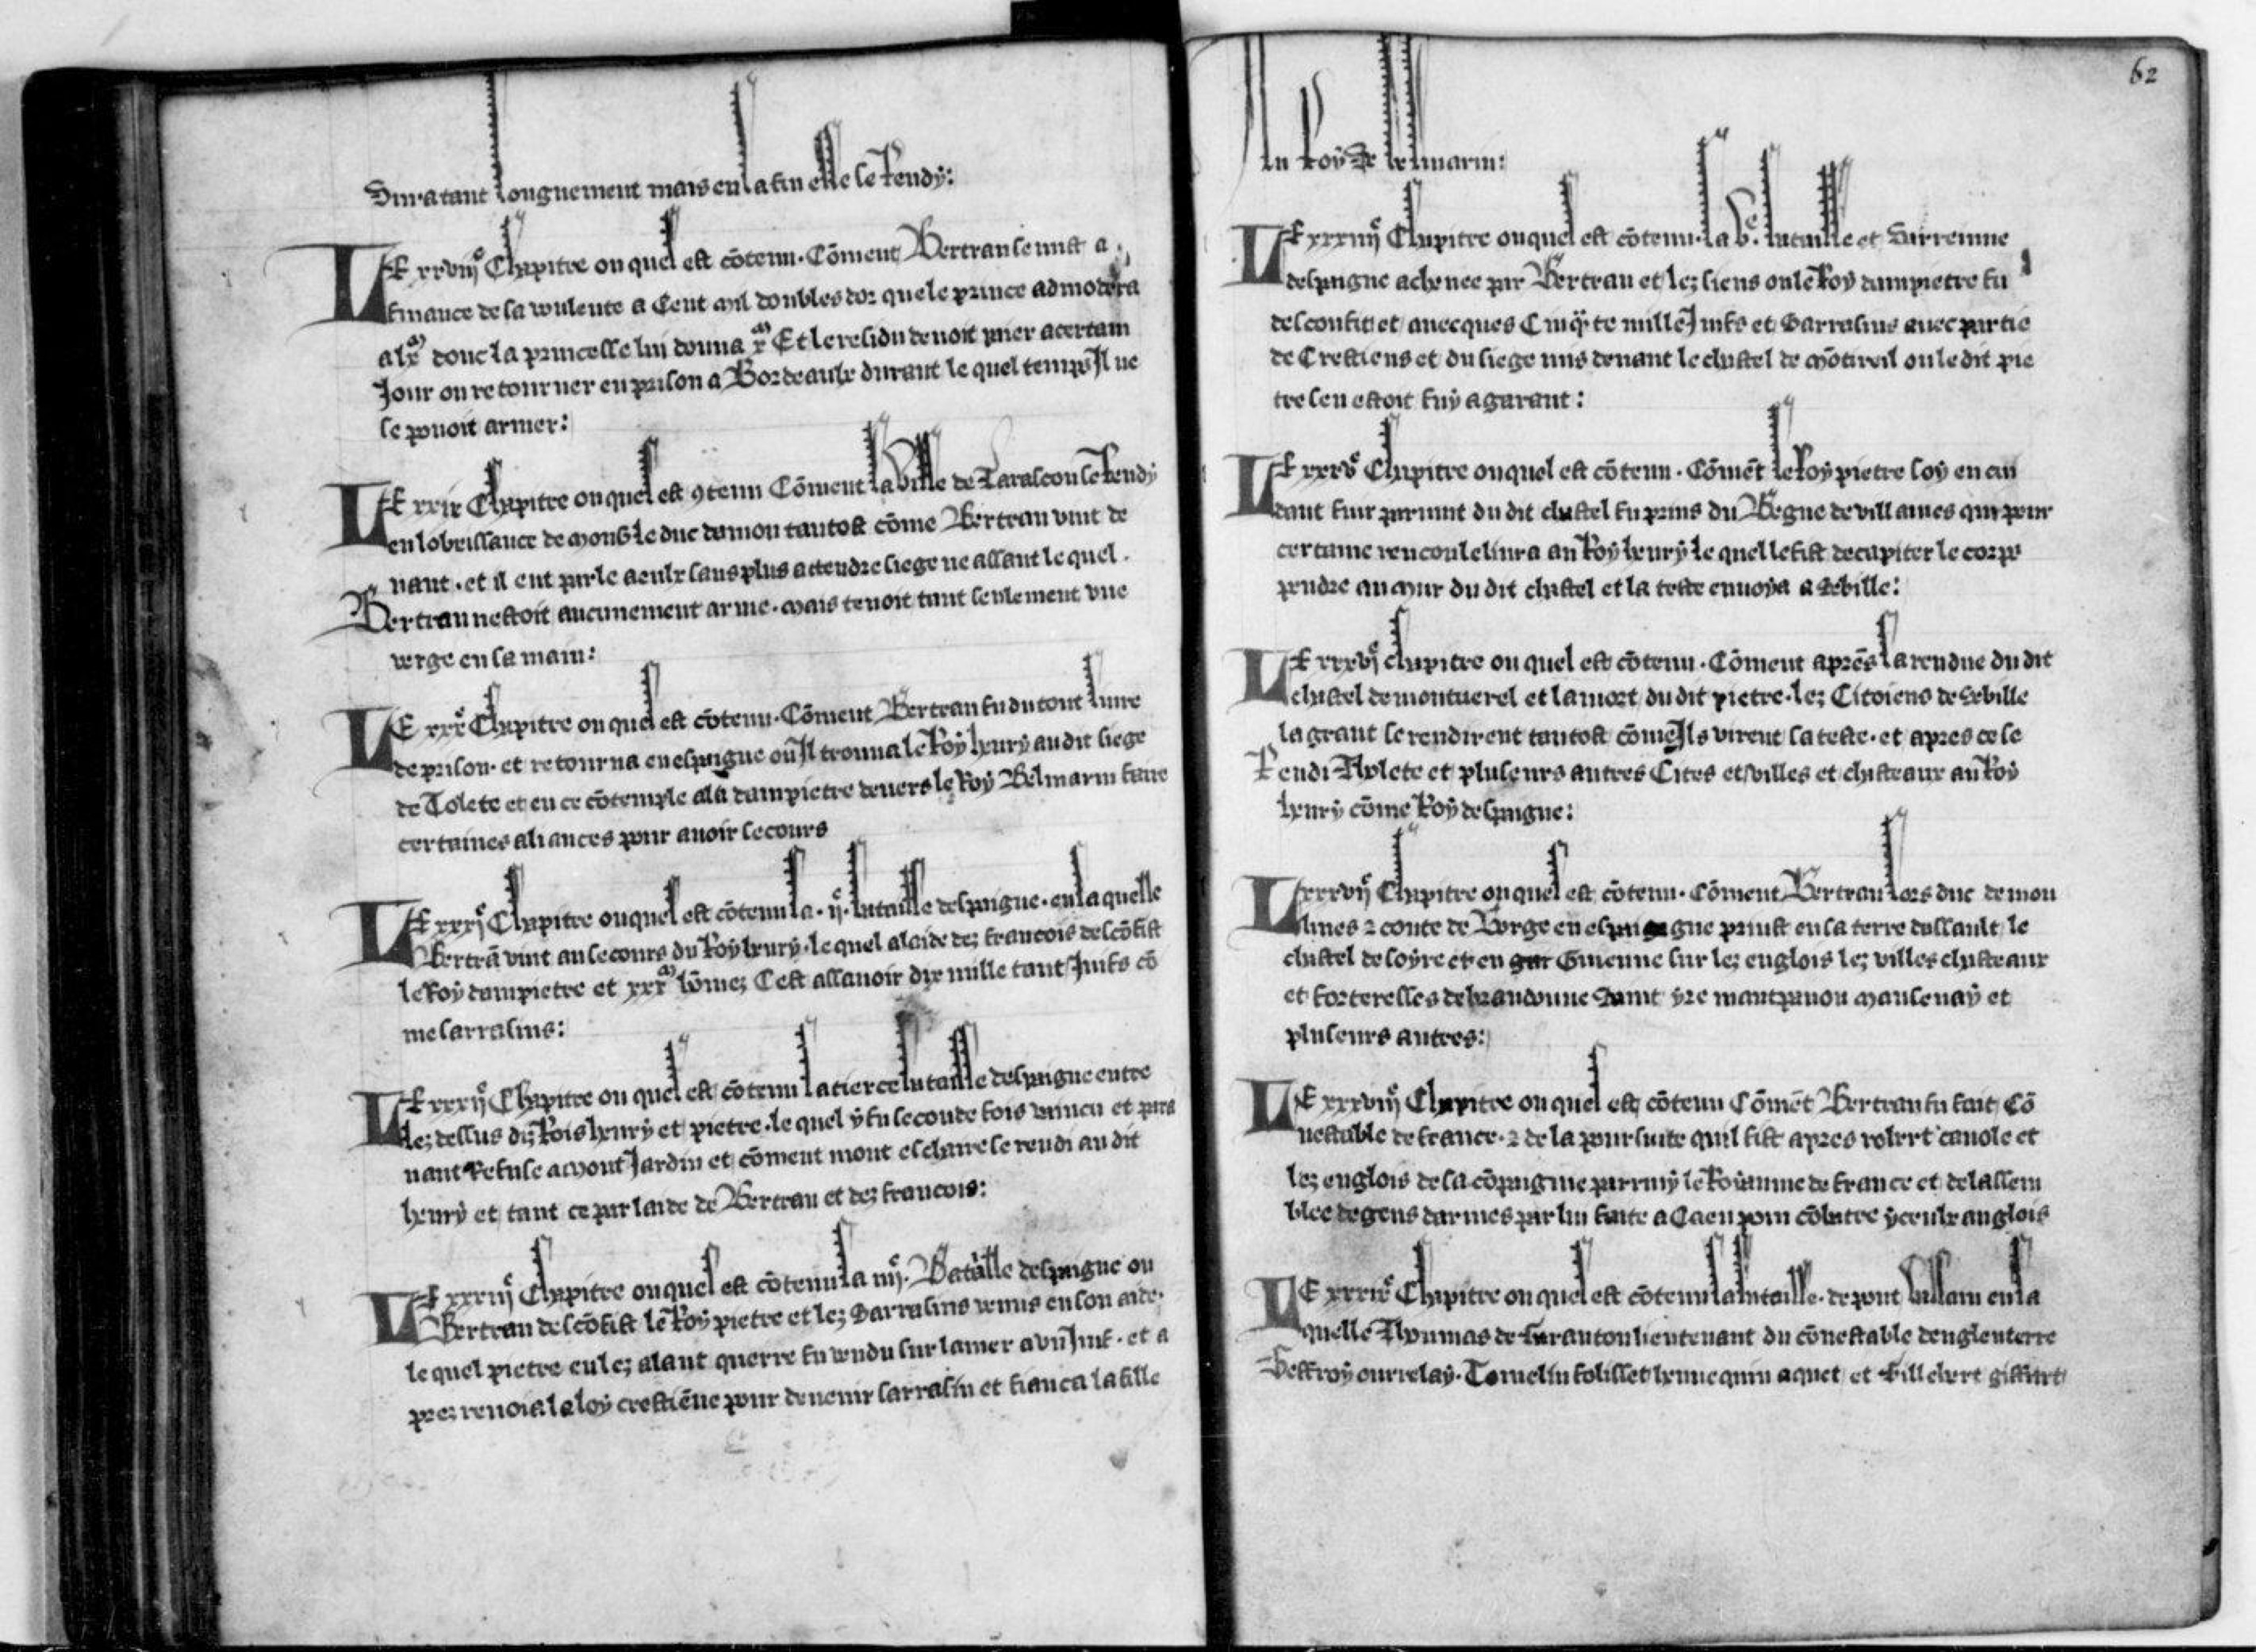 Dura tant longuement mais en la fin elle se rendy:
LE xxviijᵉ Chapitre ou quel est cōtenu. Cōment Bertran se mist a
finance de sa voulente a Cent mil doubles dor que le prince admodera
a lxᵐ donc la princesse lui donna xᵐ Et le residu devoit paier a certain
Jour ou retourner en prison a Bordeaulx durant le quel temps Il ne
se povoit armer:
LE xxix Chapitre ou quel est 9tenu Cōment la ville de Tarascon se rendy
en lobeissance de monsᵍ le duc daniou tantost cōme Bertran vint de
nant. et il eut parle a eulx sans plus attendre siege ne assaut le quel.
Bertran nestoit aucunement arme. mais tenoit tant seulement une
verge en sa main:
LE xxxᵉ Chapitre ou quel est cōtenu. Cōment Bertran fu du tout livre
de prison. et retourna en espaigne ou Il trouva le Roy henry au dit siege
de Tolete et en ce cōtemple ala dampietre devers le Roy Belmarin faire
certaines aliances pour avoir secours
LE xxxjᵉ Chapitre ou quel est cōtenu la .ijᵉ. bataille despaigne. en la quelle
Bertrā vint au secours du Roy henry. le quel a laide dez francois descōfist
le Roy dampietre et xxxᵐ hōmez Cest assavoir dix mille tant Juifs cō
me sarrasins:
LE xxxijᵉ Chapitre ou quel est cōtenu la tierce bataille despaigne entre
lez dessus diz Rois henry et pietre. le quel y fu seconde fois vaincu et para
vant Refuse a mont Jardin et cōment mont esclaire se rendi au dit
henry et tant ce par laide de Bertran et dez francois:
LE xxxiijᵉ Chapitre ou quel est cōtenu la iiijᵉ. Bataille despaigne ou
Bertran descōfist le Roy pietre et lez Sarrasins venus en son aide.
le quel pietre eulez alant querre fu vendu sur la mer a un Juif. et a
prez renoia la loy crestiēne pour devenir sarrasin et fianca la fille
du Roy de belmarin:
LE xxxiiijᵉ Chapitre ou quel est cōtenu. la vᵉ. bataille et darreinne
despaigne achevee par Bertran et lez siens ou le Roy dampietre fu
desconfit et avecques Cinqᵃte mille Juifs et Sarrasins avec partie
de Crestiens et du siege mis devant le chastel de mōtireil ou le dit pie
tre sen estoit fuy a garant:
LE xxxvᵉ Chapitre ou quel est cōtenu. Cōmēt le Roy pietre soy en cui
dant fuir par nuit du dit chastel fu prins du Begue de villaines qui pour
certaine rencon le livra au Roy henry le quel le fist decapiter le corps
pendre au mur du dit chastel et la teste envoya a Sebille:
LE xxxvjᵉ chapitre ou quel est cōtenu. Cōment aprēs la rendue du dit
chastel de montuerel et la mort du dit pietre. lez Citoiens de Sebille
la grant se rendirent tantost cōme Ils virent sa teste. et apres ce se
Rendi Tholete et pluseurs autres Cites et villes et chasteaux au Roy
henry cōme Roy despaigne:
LE xxxvijᵉ Chapitre ou quel est cōtenu. Cōment Bertran lors duc de mou
lines 2 conte de Borge en espaigne prinst en sa terre dassault le
chastel de soyre et en Guienne sur lez englois lez villes chasteaux
et forteresses de brandonne Saint yre mantpanon mansenay et
pluseurs autres:
LE xxxviijᵉ Chapitre ou quel est cōtenu Cōmēt Bertran fu fait Cō
nestable de france. 2 de la poursuite quil fist apres robert canole et
lez englois de sa cōpaignie parmy le Royaume de france et de lassem
blee de gens darmes par lui faite a Caen pour cōbatre yceulx anglois
LE xxxixᵉ Chapitre ou quel est cōtenu la bataille. de pont vallain en la
quelle Thoumas de Garanton lieutenant du cōnestable dengleuterre
Geffroy ourrelay. Tomelin folisset hennequin aquet et Gillebert giffart
62